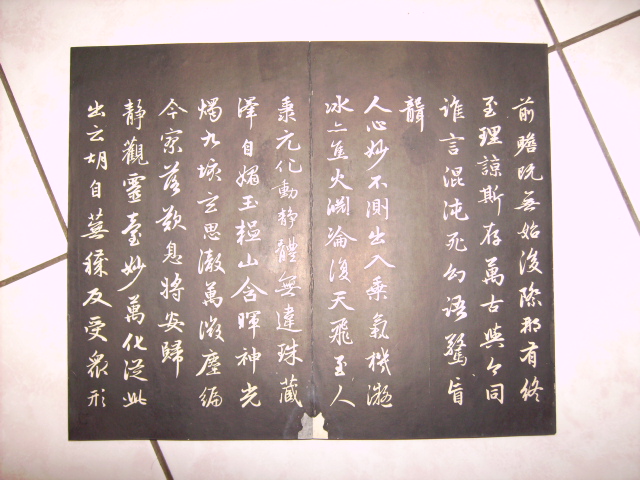 前瞻既無始後際那有終
至理諒斯存萬古與今同
誰言混沌死幻語驚盲
聾
人心妙不測出入乘氣機凝
冰亦焦火淵淪復天飛至人
秉元化動靜體無違珠藏
澤自媚玉韞山含暉神光
燭九垓玄思徹萬微塵編
今寥落歎息將安歸
靜觀靈臺妙萬化從此
出云胡自蕪穢反受眾形